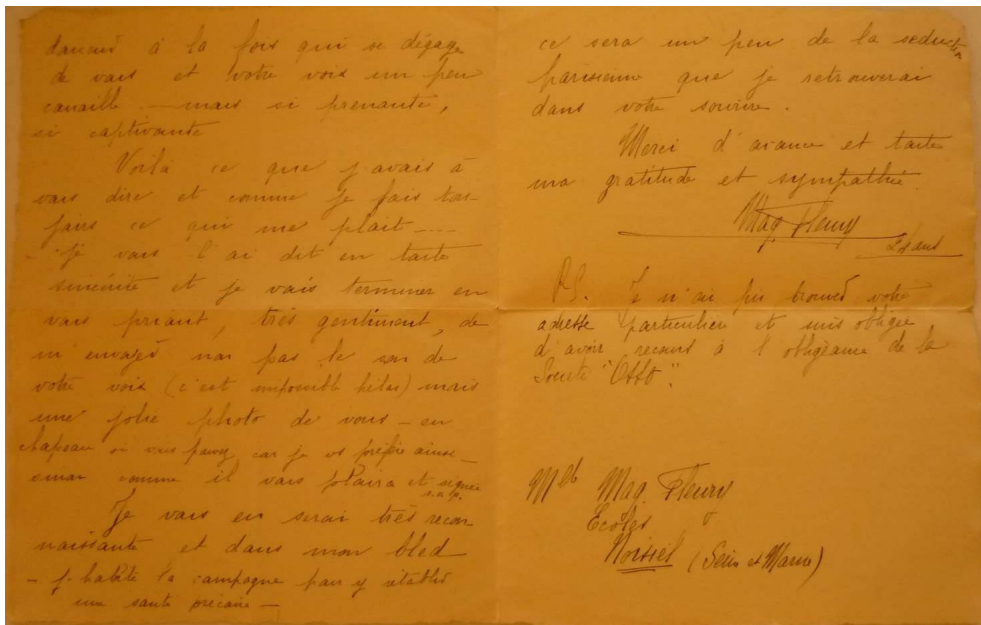 à la fois qui se dégage
de vous et votre voix un peu
canaille — mais si prenante,
si captivante
Voilà ce que j'avais à
vous dire et comme je fais tou-
jours ce qui me plait ----
- je vous l'ai dit en toute
sincérité et je vais terminer en
vous priant, très gentiment, de
m'envoyer non pas le son de
votre voix (c'est impossible hélas) mais
une jolie photo de vous - en
chapeau si vous pouvez car je vs préfère ainsi -
sinon comme il vous plaira et signée
s.v.p.
Je vous en serai très recon-
naissante et dans mon bled
- j'habite la campagne pour y rétablir
une santé précaire -
ce sera un peu de la séduction
parisienne que je retrouverai
dans votre sourire.
Merci d'avance et toute
ma gratitude et sympathie.
Mag. Fleury
ans
P.S. Je n'ai pu trouver votre
adresse particulier et suis obligée
d'avoir recours à l'obligeance de la
Société "Osso".
Mlle Mag. Fleury
Ecoles
Noisiel (Seine et Marne)